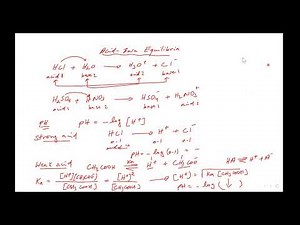 Acid-Base Equilibria
HCl + H₂O → H₃O⁺ + Cl⁻
acid1 base2 acid2 base1
H₂SO₄ + HNO₃ → HSO₄⁻ + H₂NO₃⁺
acid1 base2 base1 acid2
pH pH = -log [H⁺]
Strong acid HCl → H⁺ + Cl⁻
0.1 0.1 0.1
pH = -log(0.1) =
Weak acid CH₃COOH ⇌ H⁺ + CH₃COO⁻ HA ⇌ H⁺ + A⁻
Ka = [H⁺][CH₃COO⁻] / [CH₃COOH] = [H⁺]² / [CH₃COOH] → [H⁺] = √Ka [CH₃COOH]
pH = -log ( )